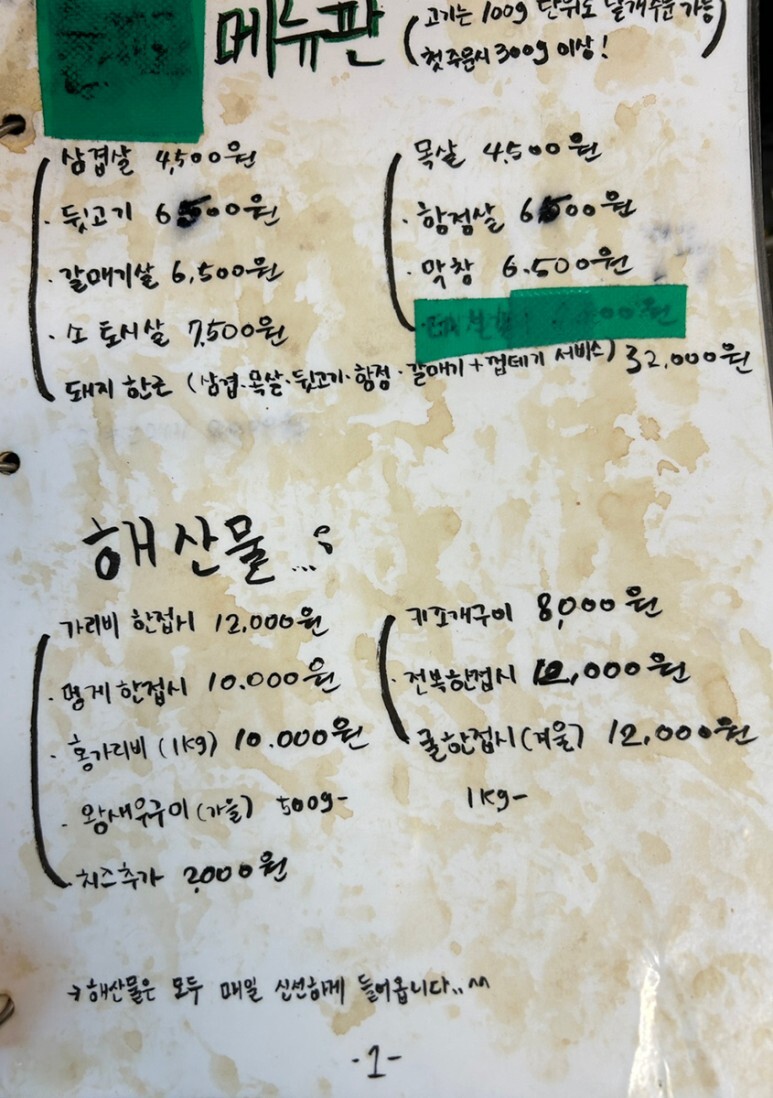 메뉴판 (고기는 100g 단위로 낱개주문 가능
첫주문시 300g 이상!)
삼겹살 4,500원
· 뒷고기 6500원
· 갈매기살 6,500원
· 소 토시살 7,500원
돼지 한근 (삼겹·목살·뒷고기·항정·갈매기+껍데기 서비스) 32,000원
목살 4,500원
· 항정살 6500원
· 막창 6.500원
해산물...
가리비 한접시 12,000원
· 멍게한접시 10.000원
· 홍가리비 (1kg) 10.000원
· 왕새우구이(가을) 500g- 1kg-
· 치즈추가 2,000원
키조개구이 8,000원
· 전복한접시 10,000원
굴한접시(겨울) 12,000원
→해산물은 모두 매일 신선하게 들어옵니다..^^
-1-